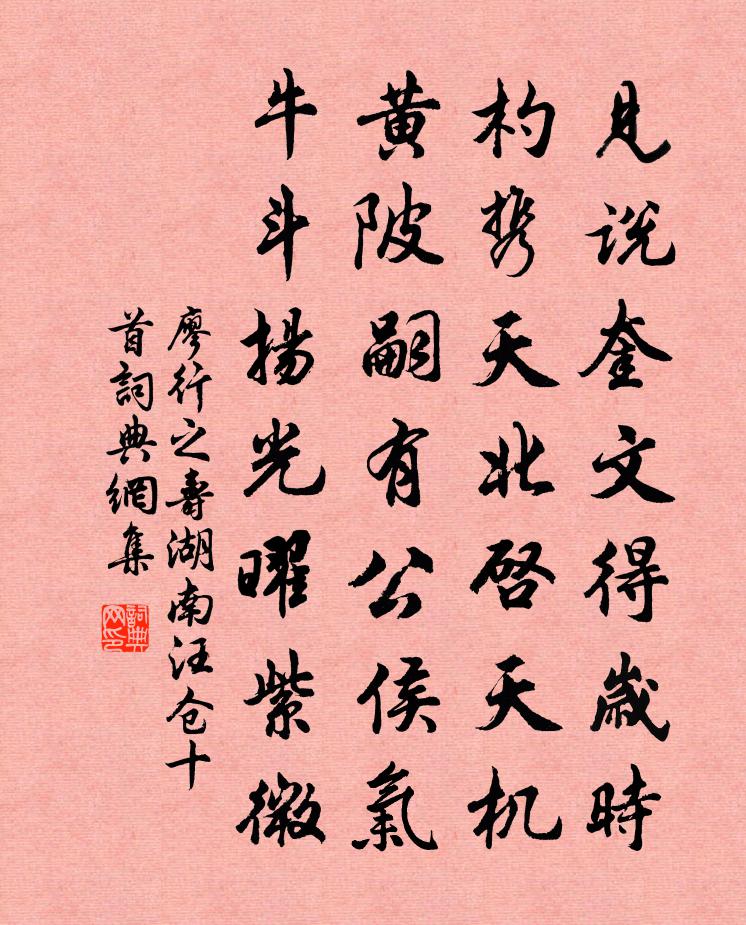 見説奎文得歲時
杓携天北啓天机
黄陂嗣有公侯氣
牛斗揚光曜紫微
廖行之壽湖南汪仓十
首詞典網集
詞典
网印